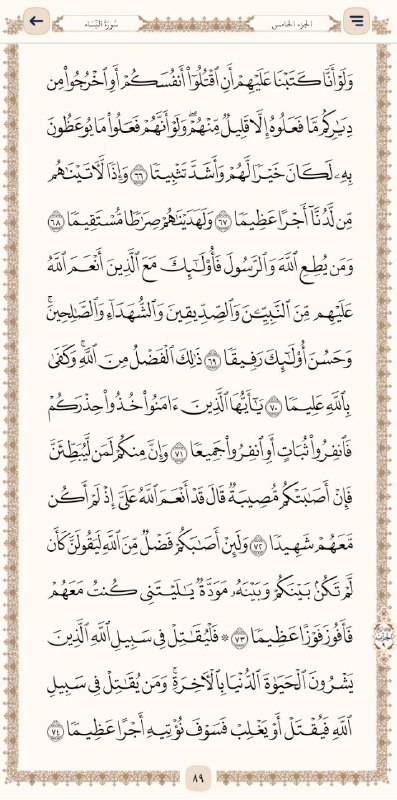 الجزء الخامس
سورة النساء
وَلَوۡ أَنَّا كَتَبۡنَا عَلَيۡهِمۡ أَنِ ٱقۡتُلُوٓاْ أَنفُسَكُمۡ أَوِ ٱخۡرُجُواْ مِن
دِيَٰرِكُم مَّا فَعَلُوهُ إِلَّا قَلِيلٞ مِّنۡهُمۡۖ وَلَوۡ أَنَّهُمۡ فَعَلُواْ مَا يُوعَظُونَ
بِهِۦ لَكَانَ خَيۡرٗا لَّهُمۡ وَأَشَدَّ تَثۡبِيتٗا ٦٦ وَإِذٗا لَّأٓتَيۡنَٰهُم
مِّن لَّدُنَّآ أَجۡرًا عَظِيمٗا ٦٧ وَلَهَدَيۡنَٰهُمۡ صِرَٰطٗا مُّسۡتَقِيمٗا ٦٨
وَمَن يُطِعِ ٱللَّهَ وَٱلرَّسُولَ فَأُوْلَٰٓئِكَ مَعَ ٱلَّذِينَ أَنۡعَمَ ٱللَّهُ
عَلَيۡهِم مِّنَ ٱلنَّبِيِّـۧنَ وَٱلصِّدِّيقِينَ وَٱلشُّهَدَآءِ وَٱلصَّٰلِحِينَۚ
وَحَسُنَ أُوْلَٰٓئِكَ رَفِيقٗا ٦٩ ذَٰلِكَ ٱلۡفَضۡلُ مِنَ ٱللَّهِۚ وَكَفَىٰ
بِٱللَّهِ عَلِيمٗا ٧٠ يَٰٓأَيُّهَا ٱلَّذِينَ ءَامَنُواْ خُذُواْ حِذۡرَكُمۡ
فَٱنفِرُواْ ثُبَاتٍ أَوِ ٱنفِرُواْ جَمِيعٗا ٧١ وَإِنَّ مِنكُمۡ لَمَن لَّيُبَطِّئَنَّ
فَإِنۡ أَصَٰبَتۡكُم مُّصِيبَةٞ قَالَ قَدۡ أَنۡعَمَ ٱللَّهُ عَلَيَّ إِذۡ لَمۡ أَكُن
مَّعَهُمۡ شَهِيدٗا ٧٢ وَلَئِنۡ أَصَٰبَكُمۡ فَضۡلٞ مِّنَ ٱللَّهِ لَيَقُولَنَّ كَأَن
لَّمۡ تَكُنۢ بَيۡنَكُمۡ وَبَيۡنَهُۥ مَوَدَّةٞ يَٰلَيۡتَنِي كُنتُ مَعَهُمۡ
فَأَفُوزَ فَوۡزًا عَظِيمٗا ٧٣ ۞ فَلۡيُقَٰتِلۡ فِي سَبِيلِ ٱللَّهِ ٱلَّذِينَ
يَشۡرُونَ ٱلۡحَيَوٰةَ ٱلدُّنۡيَا بِٱلۡأٓخِرَةِۚ وَمَن يُقَٰتِلۡ فِي سَبِيلِ
ٱللَّهِ فَيُقۡتَلۡ أَوۡ يَغۡلِبۡ فَسَوۡفَ نُؤۡتِيهِ أَجۡرًا عَظِيمٗا ٧٤
٨٩